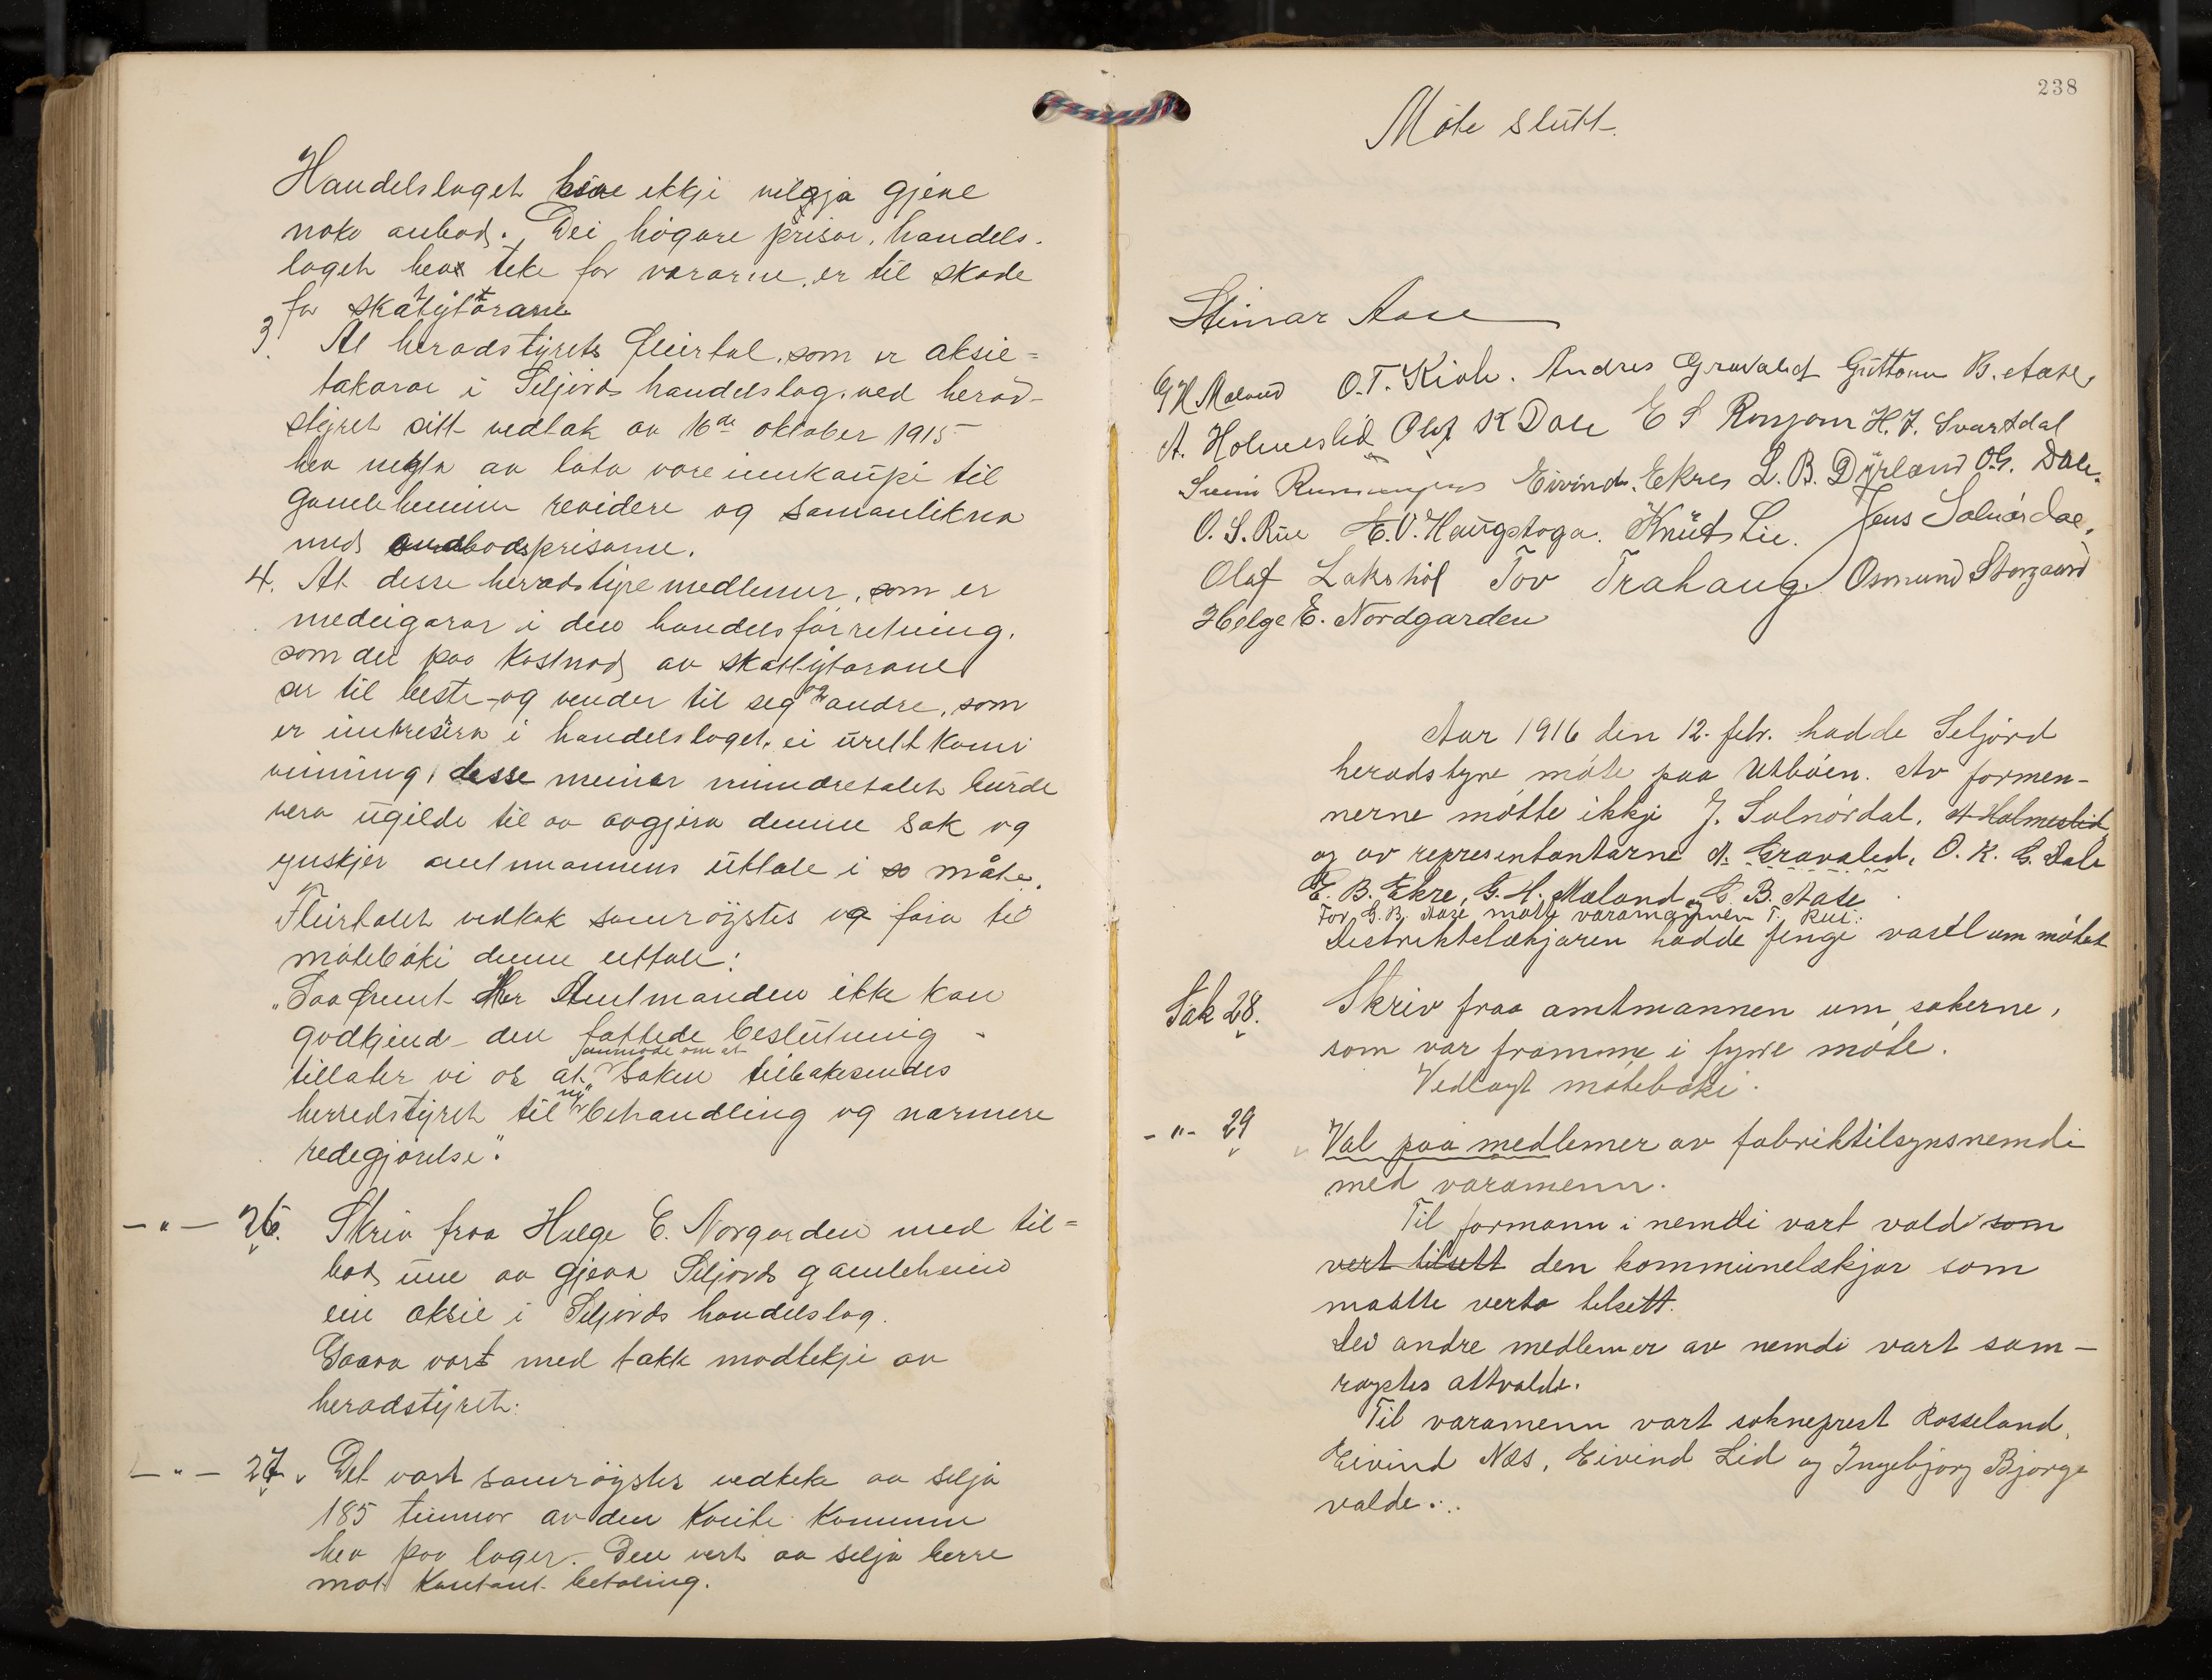 Handelslaget hev ikkje vilja gjeve
noko anbod. Dei högare prisar, handels-
laget hev teke for vararne, er til skade
for skatytarane
3. At heradstyrets fleirtal, som er aksie=
takarar i Seljords handelslag, ved herad-
styret sitt vedtak av 16de oktober 1915
hev negta av lata vareinnkaupi til
gamleheimen revidere og samanlikna
med anbodsprisarne.
4. At desse heradstyremedlemer, som er
medeigarar i den handelsforretning,
som dei paa kostnad av skattytarane
ser til beste og vender til seg og andre, som
er intresera i handelslaget, ei urett komi
vinning, desse meiner mindretalet burde
vera ugilde til aa avgjera denne sak og
ynskjer amtmannens uttale i so måte.
Fleirtalet vedtok samröystes og föra til
mötebóki denne uttale:
"Saafremt Her Amtmanden ikke kan
godkjend den fattede beslutning -
tillater vi os at anmode om at saken tilbakesendes
herredstyret til ny behandling og nærmere
redegjörelse".
-"- 26. Skriv fraa Helge E. Norgarden med til=
bod um aa gjeva Seljords gamleheim
ein aksie i Seljords handelslag.
Gaava vart med takk modtekje av
heradstyret.
-"- 27. Det vart samröystes vedteke aa selja
185 tunnor av den kveite kommunen
hev paa lager. Den vert aa selja berre
mot kontant betaling.
238
Möte slutt.
Steinar Aase
G H Maland O.T. Kivle. Andres Gravalid Guttorm B. Aase
A. Holmeslid Olaf K Dale E S Ronjom H. J. Svartdal
Eivind Ekres L. B. Dyrland O.G. Dale.
O. S. Rue E. O. Haugstoga. Knut Lie. Jens Solnördal,
Olaf Lakshöl Tov Trahaug Osmund Storgaard
Helge E. Nordgarden
Aar 1916 den 12. febr. hadde Seljord
heradstyre möte paa Utböen. Av formen-
nerne mötte ikkje J. Solnördal, A Holmeslid,
og av representantarne A. Gravalid, O. K. G. Dale
E. B. Ekre, G. H. Maland og G. B. Aase
For G. B. Aase mötte varamannen T. Rue.
Distriktslækjaren hadde fenge varsl um mötet
Sak 28. Skriv fraa amtmannen um sakerne,
som var framme i fyrre möte.
Vedlagt möteboki.
-"- 29 Val paa medlemer av fabriktilsynsnemdi
med varamenn.
Til formann i nemdi vart vald som
vert tilsett den kommunelækjar som
maatte verta tilsett.
Dei andre medlemer av nemdi vart sam-
röystes attvalde.
Til varamenn vart sokneprest Rosseland,
Eivind Næs, Eivind Lid og Ingebjörg Bjorge
valde.